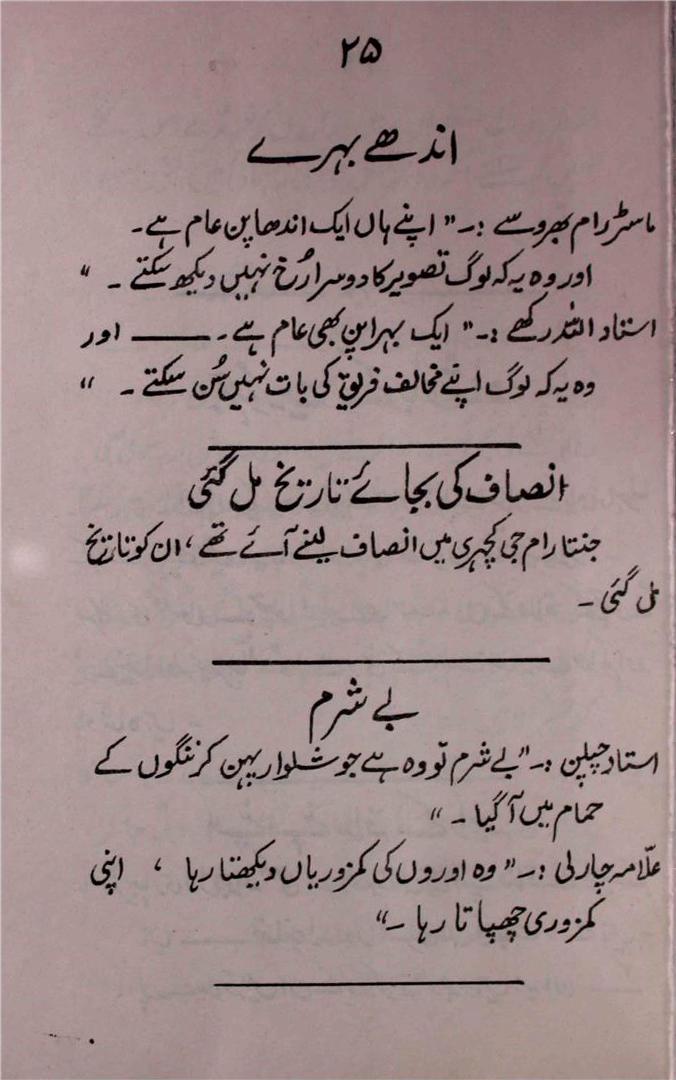 ۲۵
اندھے بہرے
ماسٹر رام بھروسے :۔ " اپنے ہاں ایک اندھاپن عام ہے۔
اور وہ یہ کہ لوگ تصویر کا دوسرا رُخ نہیں دیکھ سکتے ۔ "
استاد اللہ رکھے :۔ " ایک بہراپن بھی عام ہے ۔ ——— اور
وہ یہ کہ لوگ اپنے مخالف فریق کی بات نہیں سُن سکتے ۔ "
انصاف کی بجائے تاریخ مل گئی
جنتا رام جی کچہری میں انصاف لینے آئے تھے ، ان کو تاریخ
مل گئی ۔
بے شرم
استاد چپلن :۔ " بے شرم تو وہ ہے جو شلوار پہن کر ننگوں کے
حمام میں آ گیا ۔ "
علّامہ چارلی :۔ " وہ اوروں کی کمزوریاں دیکھتا رہا ، اپنی
کمزوری چھپاتا رہا ۔ "